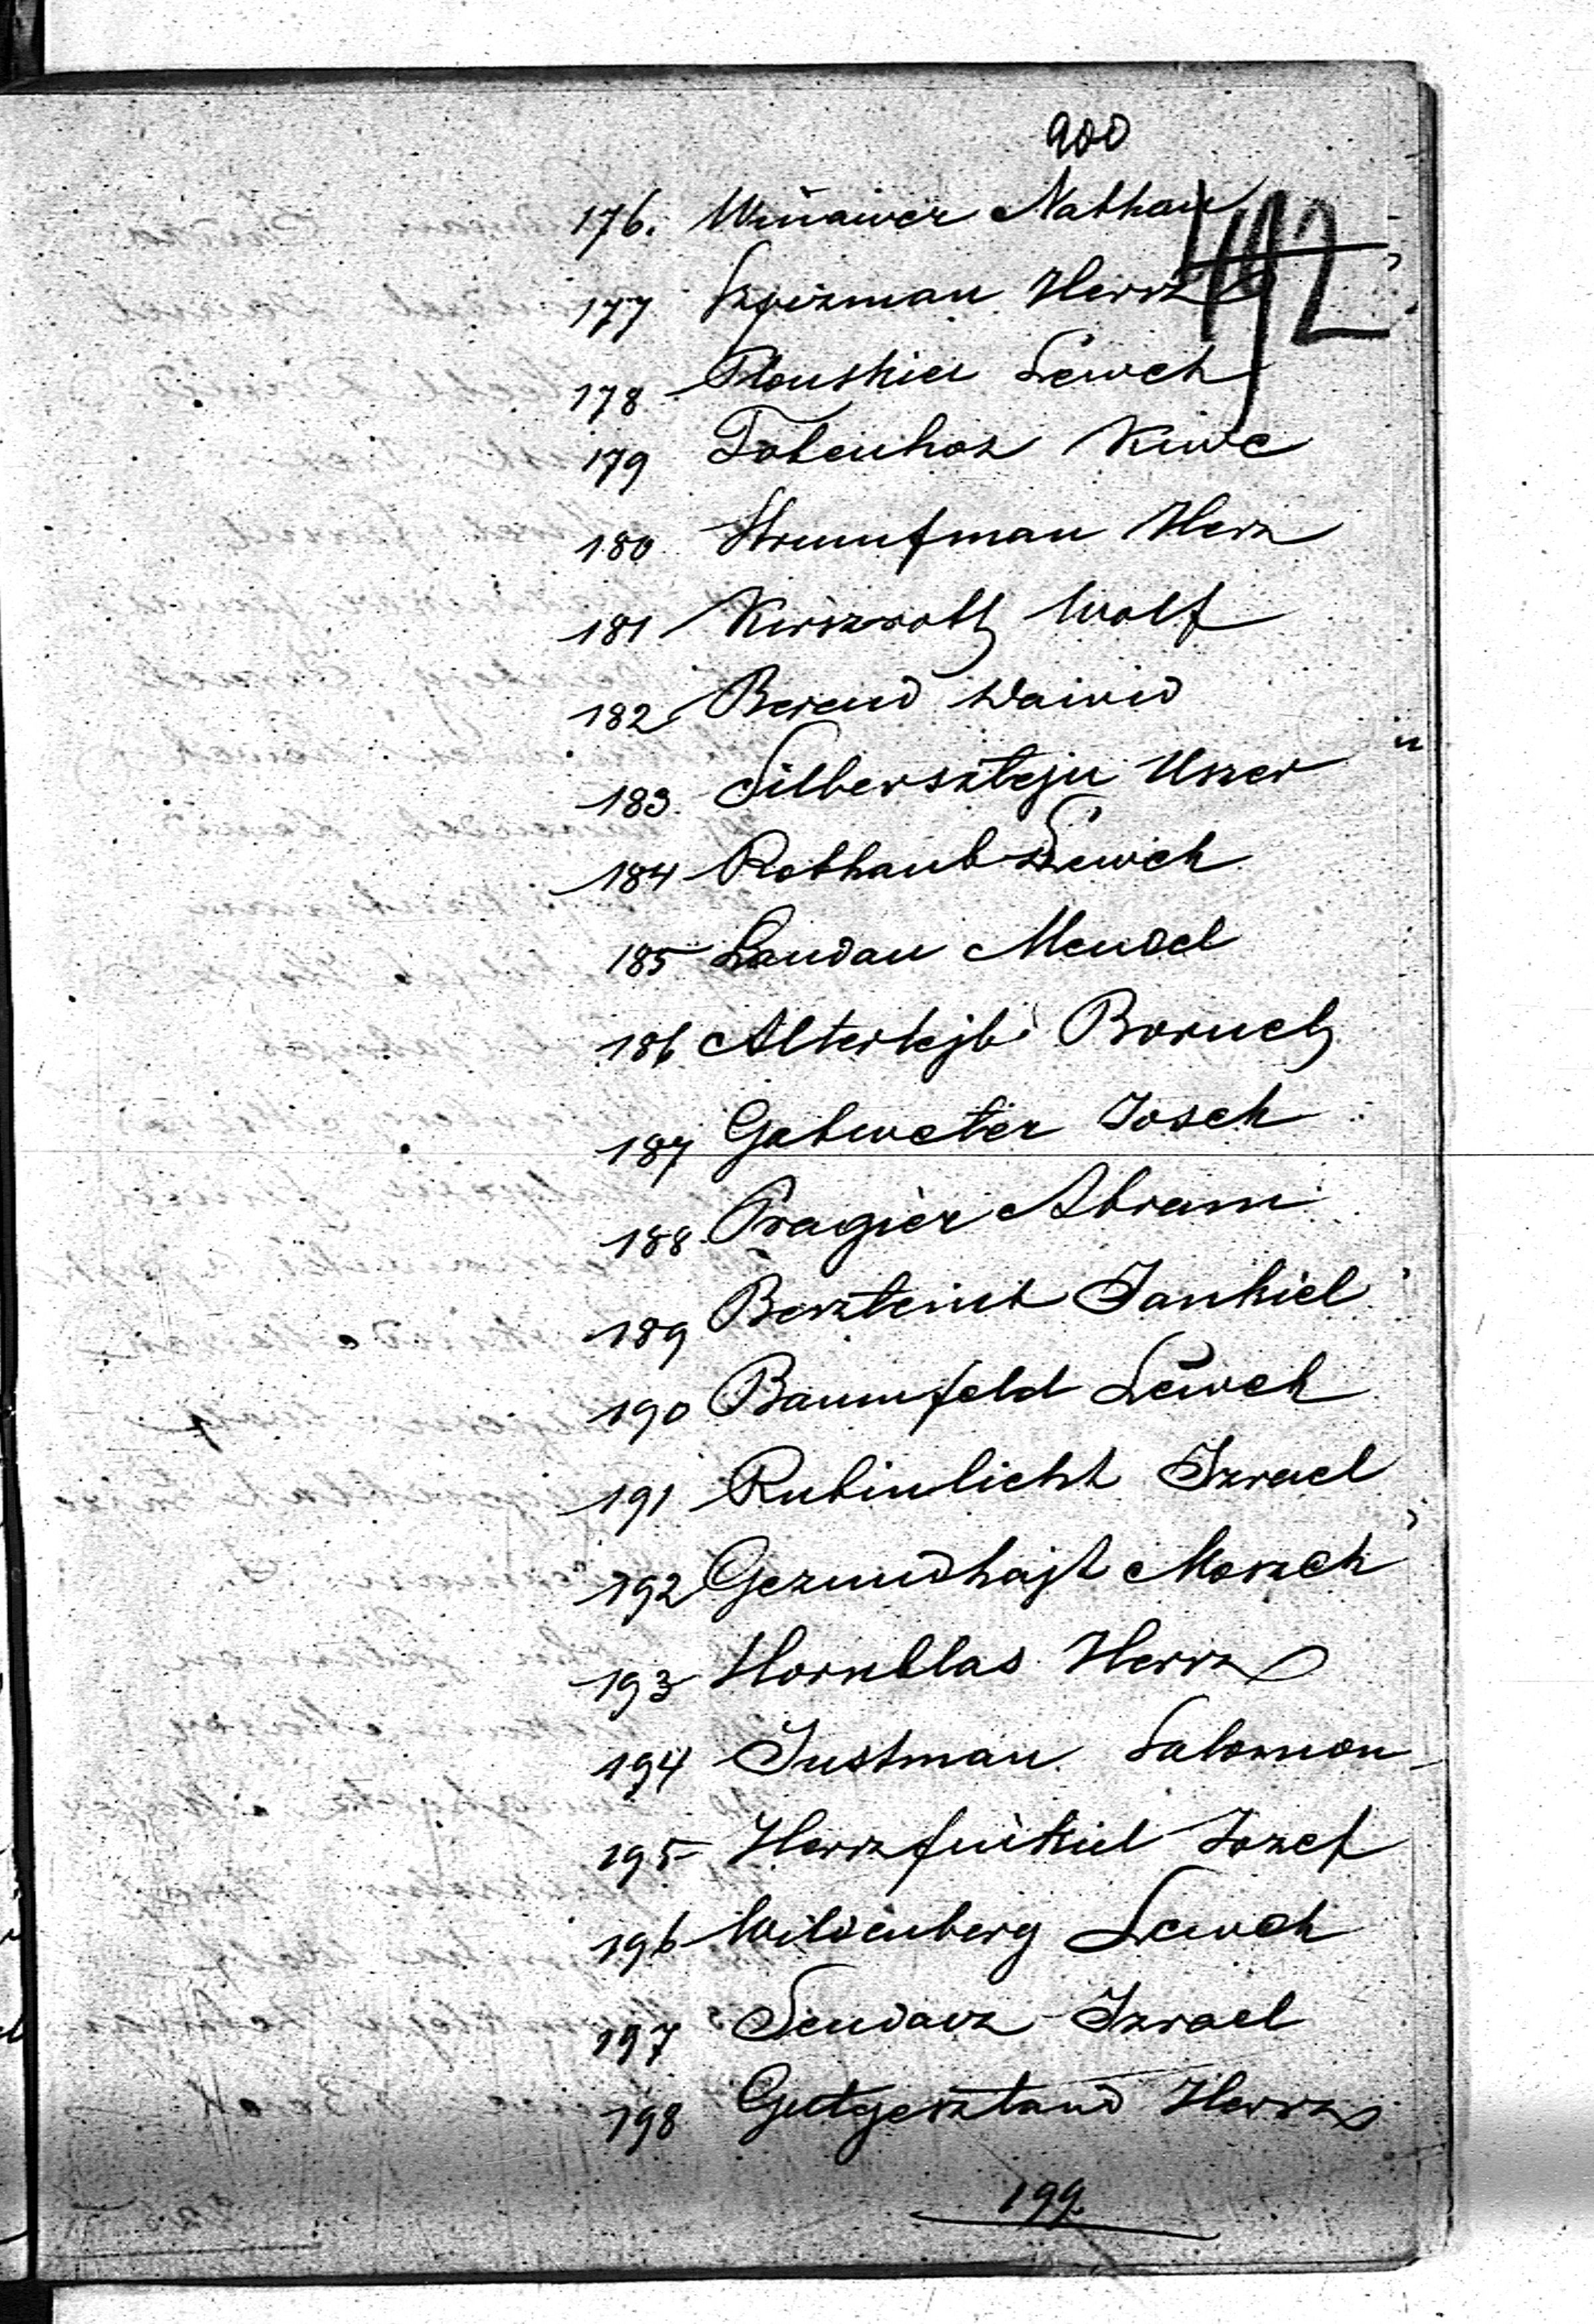 900
492
176. Winawer Nathan
177 Szpizman Hersz
178 Plonskier Lewek
179 Tobenhaz Kiwe
180 Strumfman Herz
181 Kirszrott Wolf
182 Berend Dawid
183. Silbersztejn Uszer
184 Rothaub Lewek
185 Landau Mendel
186 Alterlejb Boruch
187 Gabweter Josek
188. Pragier Abram
189 Jankiel
190 Baumfeld Lewek
191 Rubinlicht Izrael
192 Gezundhajt Moszek
193 Hornblas Hersz
194 Justman Salomon
195 Herszfinkiel Josef
196 Wildenberg Lewek
197 Sendarz Izrael
198 Gutgesztand Hersz
199.